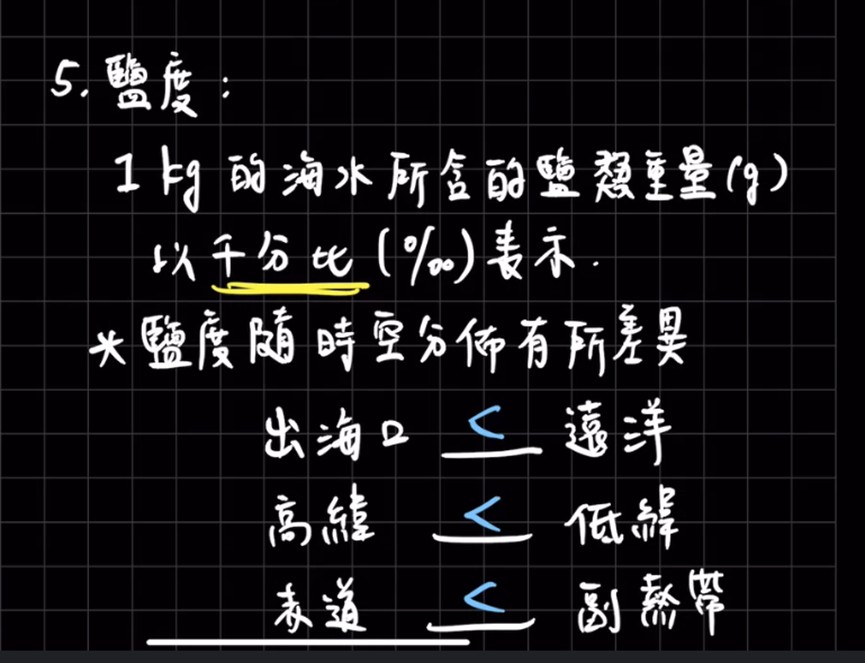 5. 鹽度:
1 kg 的海水所含的鹽類重量(g)
以千分比(‰)表示.
*鹽度隨時空分佈有所差異
出海口 < 遠洋
高緯 < 低緯
赤道 < 副熱帶